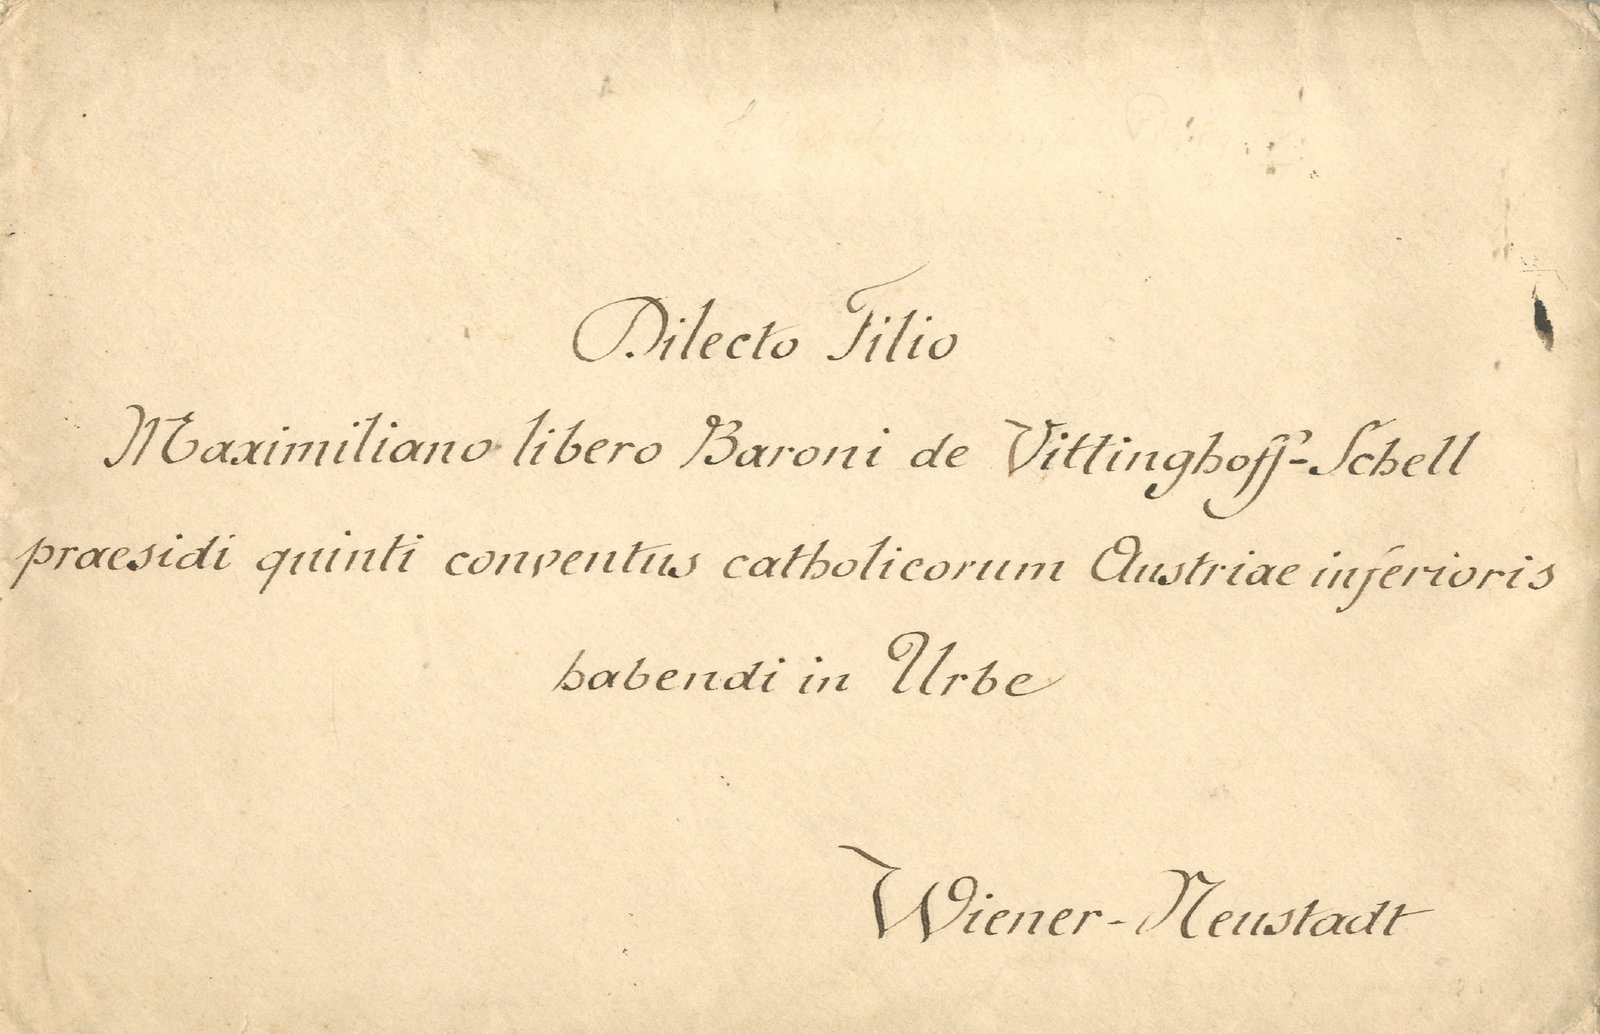 Dilecto Filio
Maximiliano libero Baroni de Vittinghoff-Schell
praesidi quinti conventus catholicorum Austriae inferioris
habendi in Urbe
Wiener-Neustadt